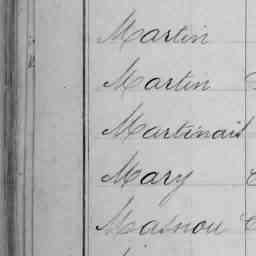 Martin
Martin
Martinais
Mary
Masnou